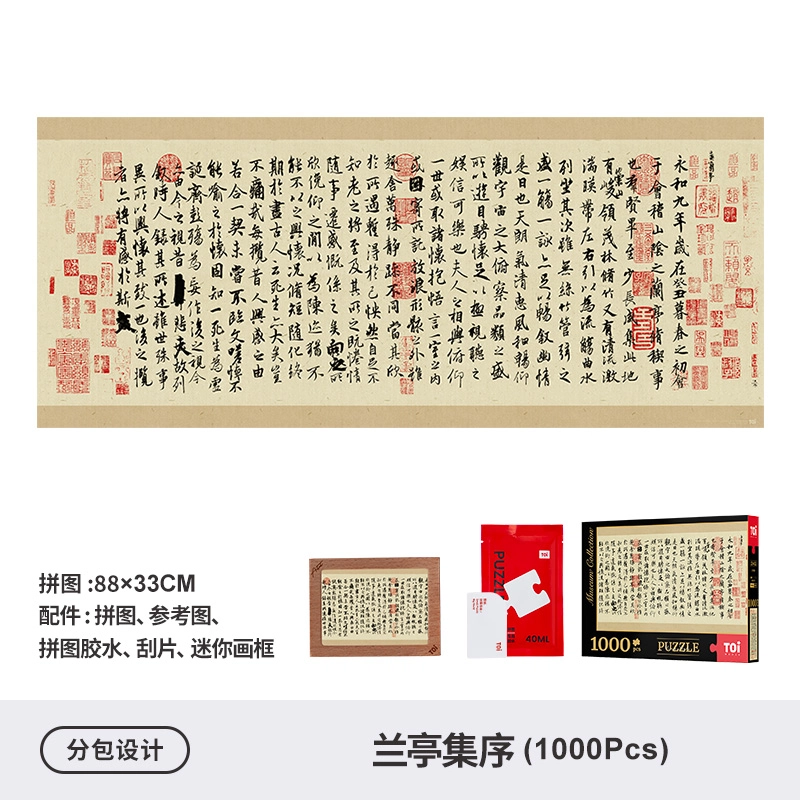 永和九年歲在癸丑暮春之初會
于會稽山陰之蘭亭脩稧事
也羣賢畢至少長咸集此地
有崇山峻領茂林脩竹又有清流激
湍暎帶左右引以為流觴曲水
列坐其次雖無絲竹管弦之
盛一觴一詠亦足以暢叙幽情
是日也天朗氣清惠風和暢仰
觀宇宙之大俯察品類之盛
所以遊目騁懷足以極視聽之
娛信可樂也夫人之相與俯仰
一世或取諸懷抱悟言一室之內
或因寄所託放浪形骸之外雖
趣舍萬殊靜躁不同當其欣
於所遇蹔得於己怏然自足不
知老之將至及其所之既惓情
隨事遷感慨係之矣向之所
欣俛仰之閒以為陳迹猶不
能不以之興懷況脩短隨化終
期於盡古人云死生亦大矣豈
不痛哉每攬昔人興感之由
若合一契未嘗不臨文嗟悼不
能喻之於懷固知一死生為虛
誕齊彭殤為妄作後之視今
亦由今之視昔悲夫故列
叙時人錄其所述雖世殊事
異所以興懷其致一也後之攬
者亦將有感於斯文
拼图:88×33CM
配件:拼图、参考图、
拼图胶水、刮片、迷你画框
TOi
TOi
PUZZLE
40ML
TOi
Museum Collection
1000 pcs
PUZZLE
TOi
TOi
1000
分包设计
兰亭集序 (1000Pcs)